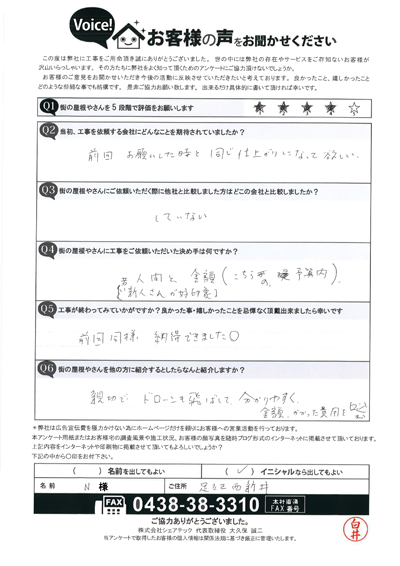 Voice!
お客様の声をお聞かせください
この度は弊社に工事をご用命頂き誠にありがとうございました。世の中には弊社の存在やサービスをご存知ないお客様が
沢山いらっしゃいます。その方たちに弊社をよく知って頂くためのアンケートにご協力頂けないでしょうか。
お客様のご意見をお聞かせいただき今後の活動に反映させていただきたいと考えております。良かったこと、嬉しかったこと
どのような些細な事でも結構です。是非ご協力お願い致します。出来るだけ具体的に書いて頂ければ幸いです。
Q1 街の屋根やさんを5段階で評価をお願いします
Q2 当初、工事を依頼する会社にどんなことを期待されていましたか?
前回 お願いした時と同じ仕上がりになって欲しい
Q3 街の屋根やさんにご依頼いただく際に他社と比較しました方はどこの会社と比較しましたか?
していない
Q4 街の屋根やさんに工事をご依頼いただいた決め手は何ですか?
人間と金額(こちらの 予算内)
新人さんが好印象
Q5 工事が終わってみていかがですか?良かった事・嬉しかったことを忌憚なく頂戴出来ましたら幸いです
前回同様 納得できました〇
Q6 街の屋根やさんを他の方に紹介するとしたらなんと紹介しますか?
親切で ドローンも飛ばして、分かりやすく、
金額、かかった費用を
*弊社は広告宣伝費を極力かけない為にホームページだけを頼りにお客様への営業活動を行っております。
本アンケート用紙またはお客様宅の調査風景や施工状況、お客様の顔写真を随時ブログ形式のインターネットに掲載させて頂いております。
上記内容をインターネットや印刷物に掲載させて頂いてもよろしいでしょうか?
下記の中から〇印をお付下さい。
( )名前を出してもよい (✓)イニシャルなら出してもよい
名前 N 様 ご住所 足立区西新井
FAX 0438-38-3310 本社直通 FAX番号
ご協力ありがとうございました。
株式会社シェアテック 代表取締役 大久保 誠二
当アンケートで取得したお客様の個人情報は関係法規に基づき厳正に管理いたします。
白井